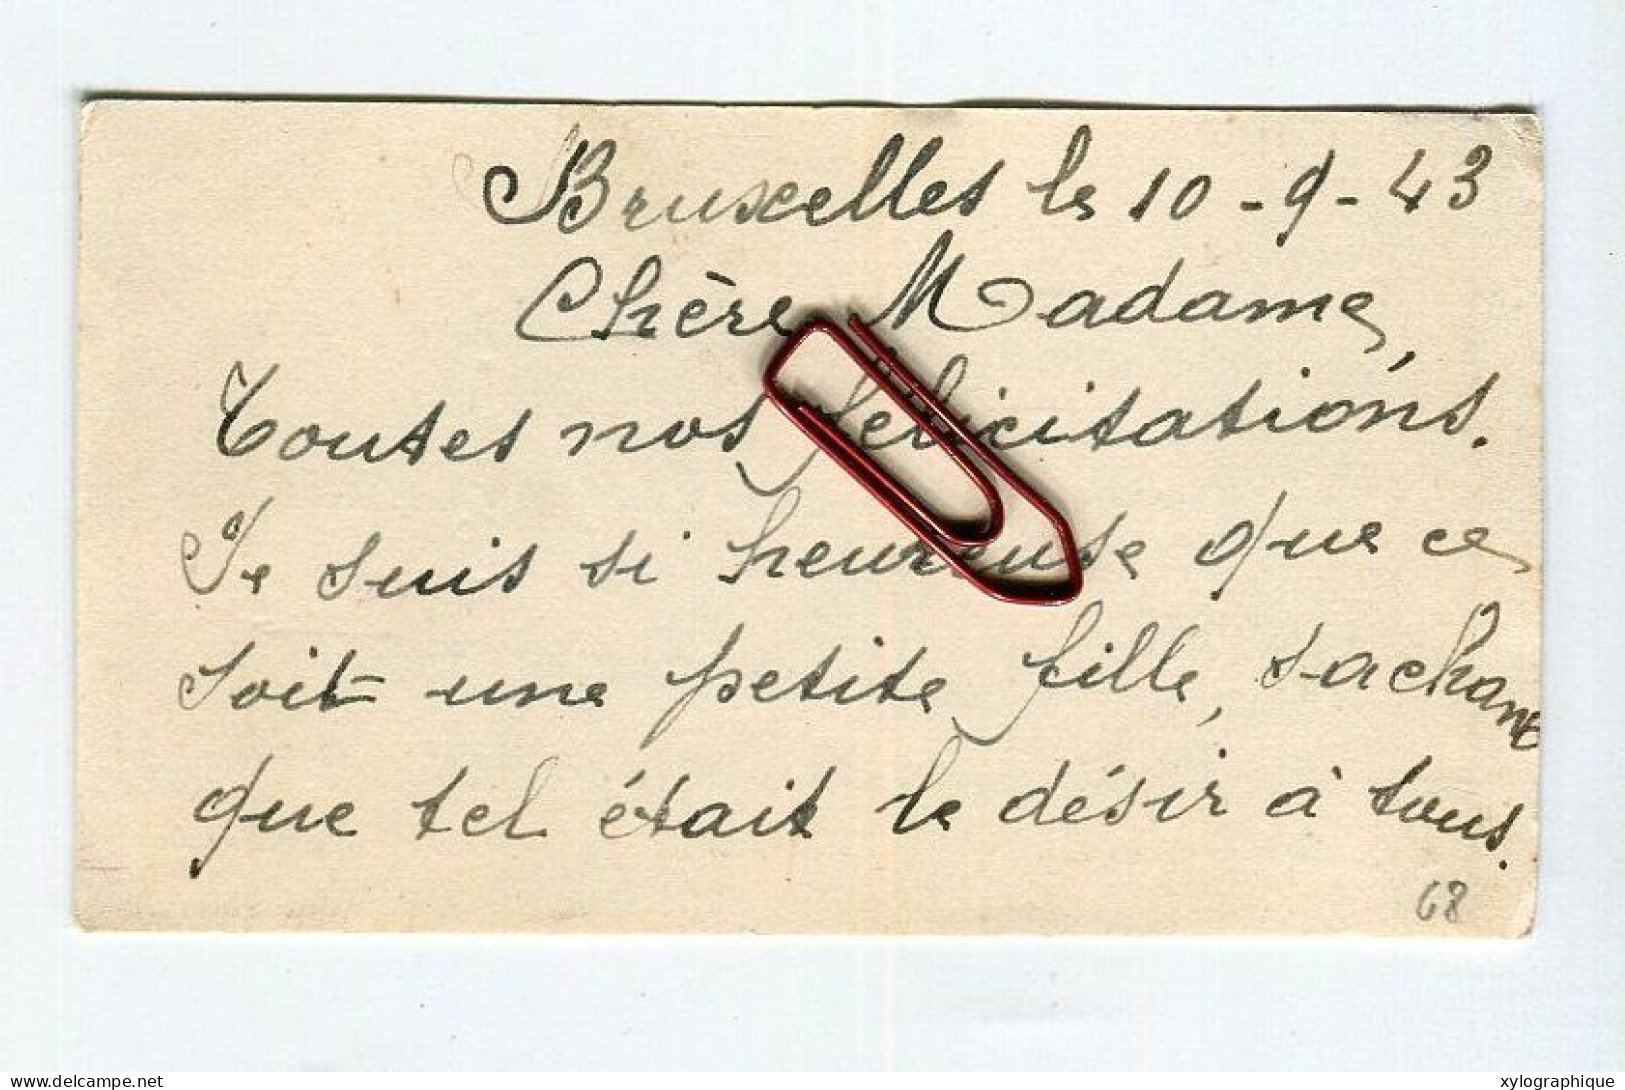 Bruxelles le 10-9-43
Chère Madame,
Toutes nos félicitations.
Je suis si heureuse que ce
soit une petite fille, sachant
que tel était le désir à tous.
68
delcampe.net
xylographique